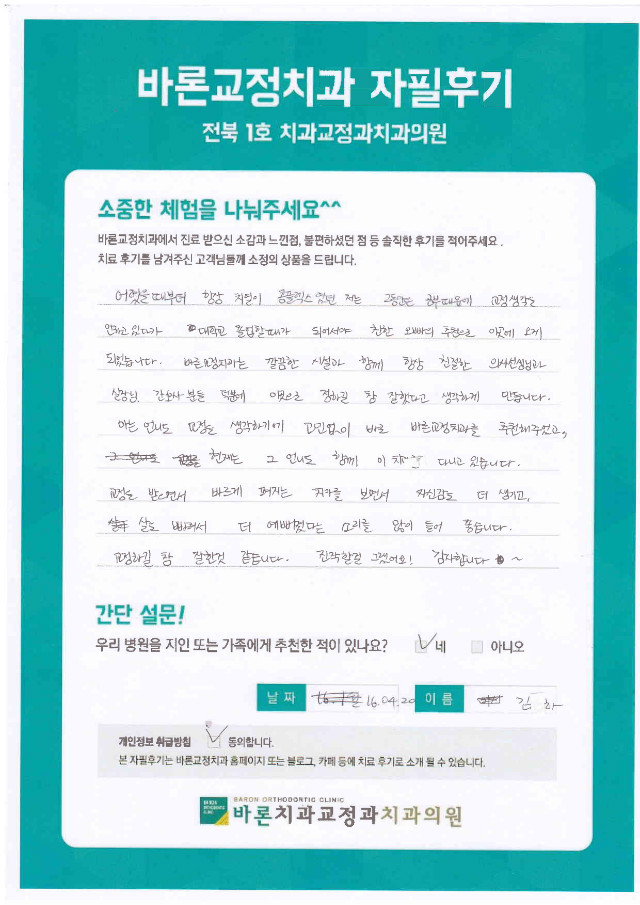 바론교정치과 자필후기
전북 1호 치과교정과치과의원
소중한 체험을 나눠주세요^^
바론교정치과에서 진료 받으신 소감과 느낀점, 불편하셨던 점 등 솔직한 후기를 적어주세요.
치료 후기를 남겨주신 고객님들께 소정의 상품을 드립니다.
어렸을때부터 항상 치열이 콤플렉스였던 저는 그동안은 공부때문에 교정생각도
안하고 있다가 대학교 졸업할때가 되어서야 친한 오빠의 추천으로 이곳에 오게
되었습니다. 바론교정치과는 깔끔한 시설과 함께 항상 친절한 의사선생님과
실장님, 간호사 분들 덕분에 이곳으로 정하길 참 잘했다고 생각하게 만듭니다.
아는 언니도 교정을 생각하기에 고민없이 바로 바론교정치과를 추천해주었고,
현재는 그 언니도 함께 이 다니고 있습니다.
교정을 받으면서 바르게 펴지는 치아를 보면서 자신감도 더 생기고,
살도 빠져서 더 예뻐졌다는 소리를 많이 들어 좋습니다.
교정하길 참 잘한것 같습니다. 진작할걸 그랬어요! 감사합니다 ~
간단 설문!
우리 병원을 지인 또는 가족에게 추천한 적이 있나요? 네 아니오
날 짜 16.04.20 이 름 김 화
개인정보 취급방침 동의합니다.
본 자필후기는 바론교정치과 홈페이지 또는 블로그, 카페 등에 치료 후기로 소개 될 수 있습니다.
BARON ORTHODONTIC CLINIC
바론치과교정과치과의원